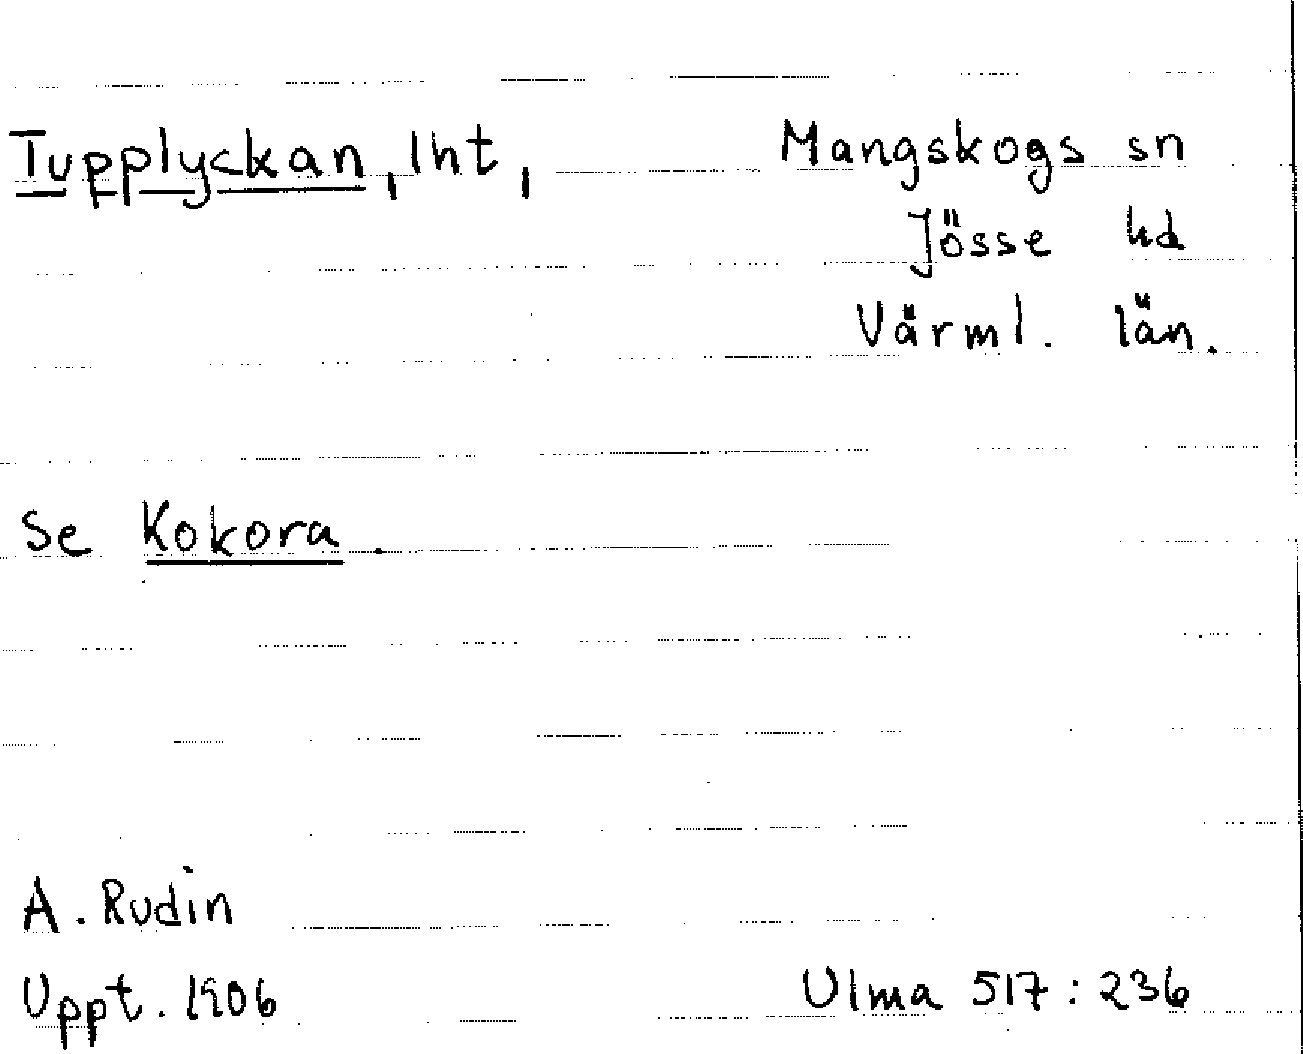 Tupplyckan, lht, Mangskogs sn
Jösse hd
Värml. län.
Se Kokora.
A. Rudin
Uppt. 1906 Ulma 517:236